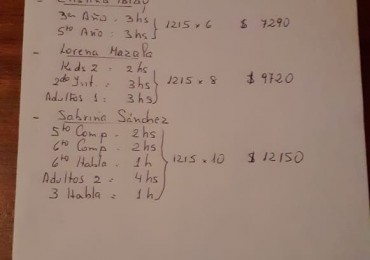 3er Año = 3hs
5to Año = 3hs } 1215 x 6 $ 7290
- Lorena Mazala
Kids 2 = 2hs
2do Juv = 3hs } 1215 x 8 $ 9720
Adultos 1 = 3hs
- Sabrina Sánchez
5to Comp = 2hs
6to Comp = 2hs
6to Habla = 1h } 1215 x 10 $ 12150
Adultos 2 = 4hs
3 Habla = 1h